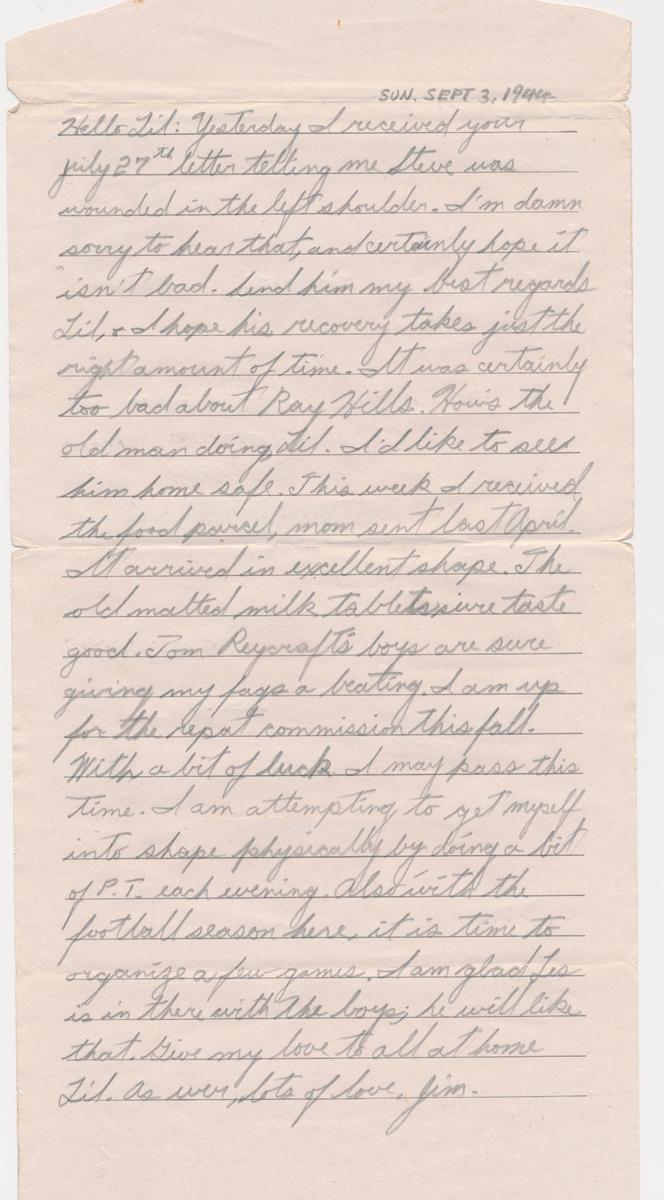 SUN. SEPT 3, 1944
Hello Lil: Yesterday I received your
July 27th letter telling me Steve was
wounded in the left shoulder. I'm damn
sorry to hear that, and certainly hope it
isn't bad. Send him my best regards
Lil, & I hope his recovery takes just the
right amount of time. It was certainly
too bad about Ray Hills. How's the
old man doing, Lil. I'd like to see
him home safe. This week I received
the food parcel, mom sent last April.
It arrived in excellent shape. The
old malted milk tablets sure taste
good. Tom Reycraft's boys are sure
giving my fags a beating. I am up
for the repat commission this fall.
With a bit of luck I may pass this
time. I am attempting to get myself
into shape physically by doing a bit
of P.T. each evening. Also with the
football season here, it is time to
organize a few games. I am glad Les
is in there with the boys; he will like
that. Give my love to all at home
Lil. As ever, lots of love, Jim.